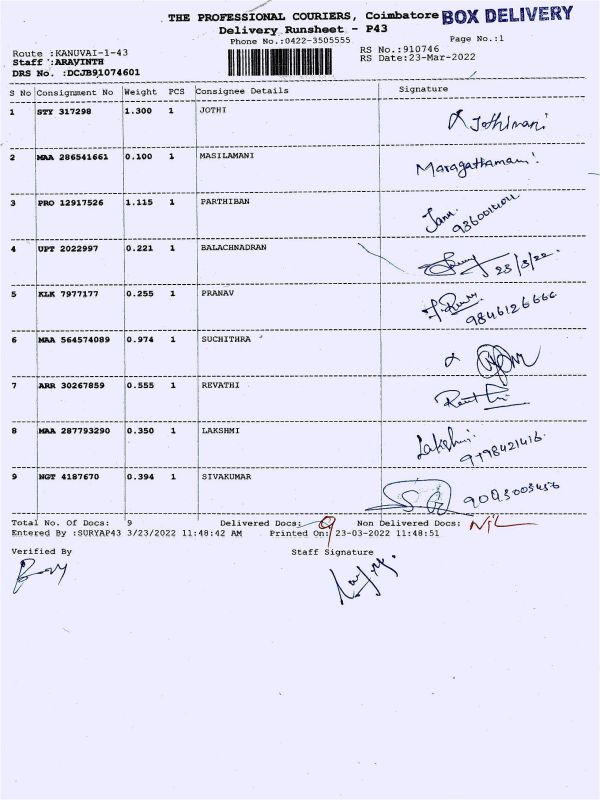 THE PROFESSIONAL COURIERS, Coimbatore BOX DELIVERY
Delivery Runsheet - P43
Phone No.:0422-3505555 Page No.:1
Route :KANUVAI-1-43 RS No.:910746
Staff :ARAVINTH RS Date:23-Mar-2022
DRS No. :DCJB91074601
S No Consignment No Weight PCS Consignee Details Signature
1 STY 317298 1.300 1 JOTHI Jothimani
2 MAA 286541661 0.100 1 MASILAMANI Maragathamani
3 PRO 12917526 1.115 1 PARTHIBAN Janu
4 UPT 2022997 0.221 1 BALACHNADRAN 23/3/22.
5 KLK 7977177 0.255 1 PRANAV
9846126666
6 MAA 564574089 0.974 1 SUCHITHRA
7 ARR 30267859 0.555 1 REVATHI
8 MAA 287793290 0.350 1 LAKSHMI Lakshmi
9 NGT 4187670 0.394 1 SIVAKUMAR
Total No. Of Docs: 9 Delivered Docs: 9 Non Delivered Docs: NIL
Entered By :SURYAP43 3/23/2022 11:48:42 AM Printed On: 23-03-2022 11:48:51
Verified By Staff Signature